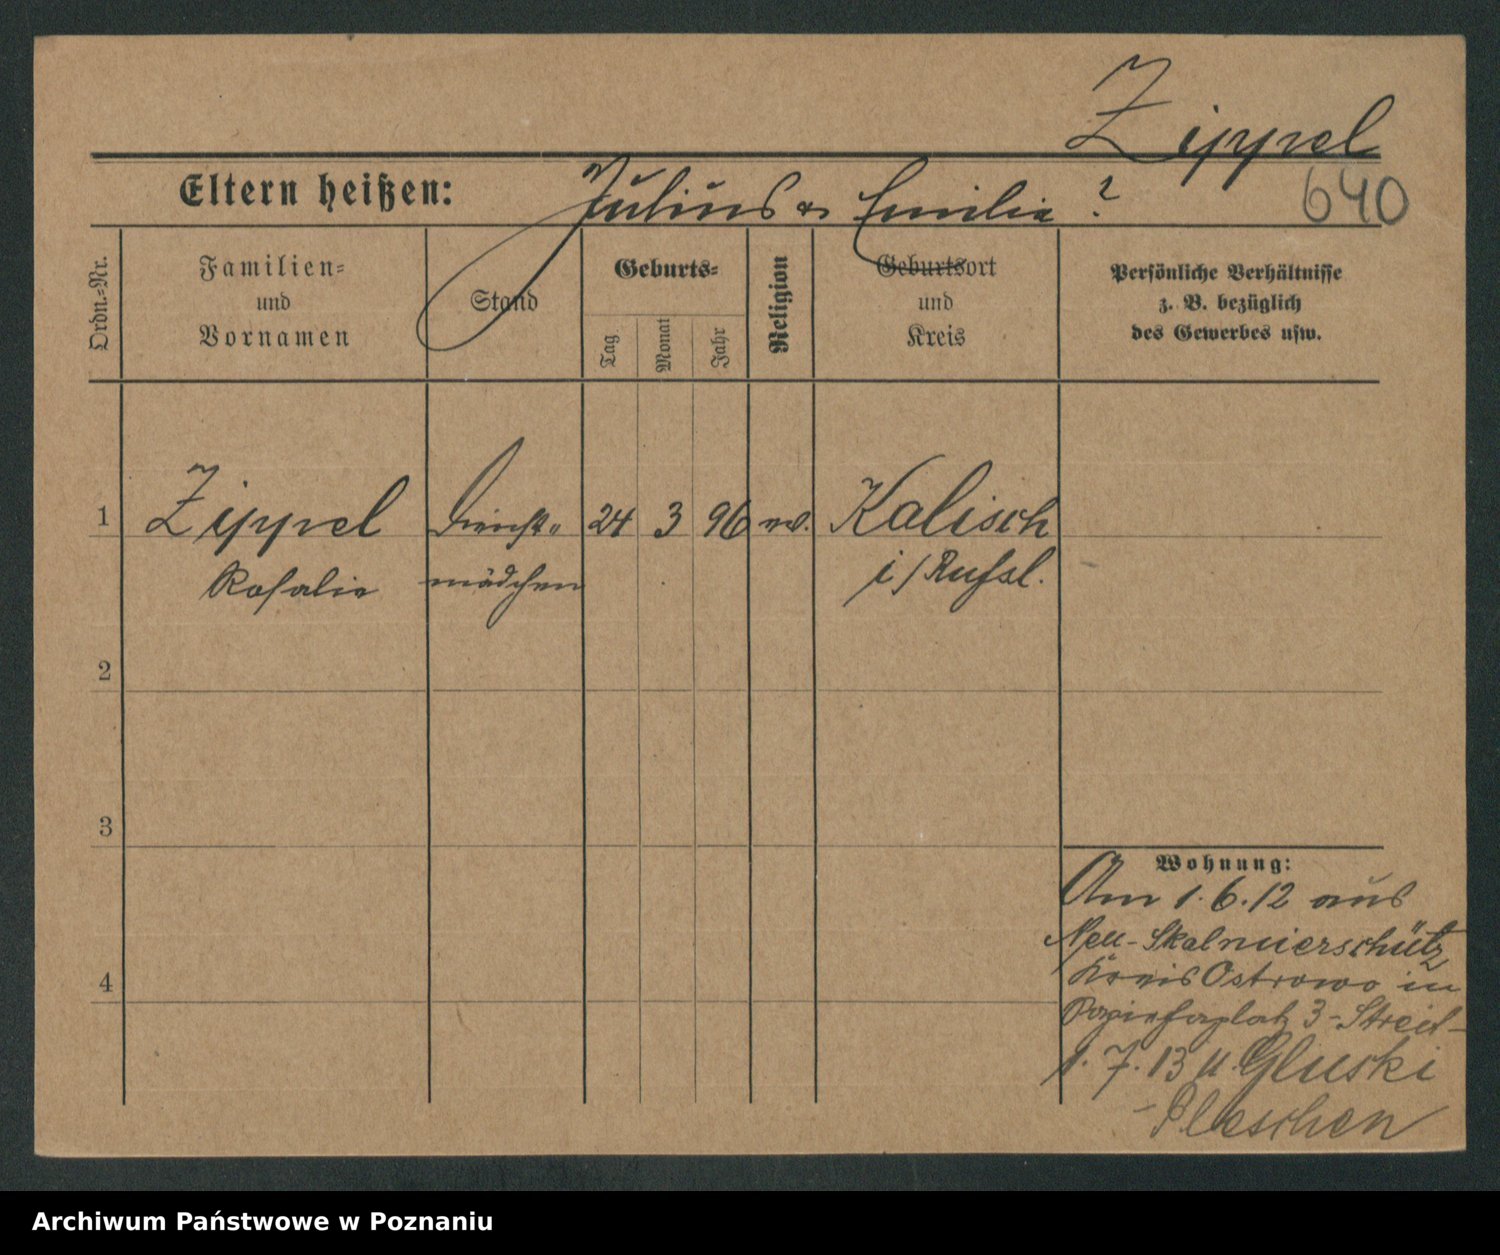 Zippel
Eltern heißen: Julius u. Emilie ?
640
Ordn.-Nr.
Familien-
und
Vornamen
Stand
Geburts-
Tag
Monat
Jahr
Religion
Geburtsort
und
Kreis
Persönliche Verhältnisse
z. B. bezüglich
des Gewerbes usw.
1 Zippel Dienst- 24 3 96 ev. Kalisch
Rosalie mädchen i/Russl.
2
3
4
Wohnung:
Am 1.6.12 aus
Neu-Skalmierschütz
Kreis Ostrowo in
3-Streit-
1.7.13 n. Gluski
-Pleschen
Archiwum Państwowe w Poznaniu